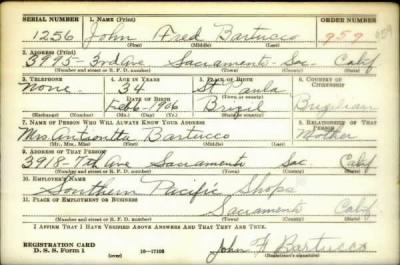 SERIAL NUMBER 1. NAME (Print) ORDER NUMBER
1256 John Fred Bartucco 959
(First) (Middle) (Last)
2. ADDRESS (Print)
3975-3rd Ave Sacramento Sac. Calif
(Number and street or R. F. D. number) (Town) (County) (State)
3. TELEPHONE 4. AGE IN YEARS 5. PLACE OF BIRTH 6. COUNTRY OF CITIZENSHIP
None. 34 St Paula
DATE OF BIRTH (Town or county)
Feb 6-1906 Brizil Brizilian
(Mo.) (Day) (Yr.) (State or country)
7. NAME OF PERSON WHO WILL ALWAYS KNOW YOUR ADDRESS 8. RELATIONSHIP OF THAT PERSON
Mrs. Bartucco Mother
(Mr., Mrs., Miss) (First) (Middle) (Last)
9. ADDRESS OF THAT PERSON
3918-7th Ave Sacramento Sac. Calif
(Number and street or R. F. D. number) (Town) (County) (State)
10. EMPLOYER'S NAME
Southern Pacific Shops
11. PLACE OF EMPLOYMENT OR BUSINESS
Sacramento Calif
(Number and street or R. F. D. number) (Town) (County) (State)
I AFFIRM THAT I HAVE VERIFIED ABOVE ANSWERS AND THAT THEY ARE TRUE.
REGISTRATION CARD
D. S. S. Form 1 (over) 16-17105 John F Bartucco
(Registrant's signature)